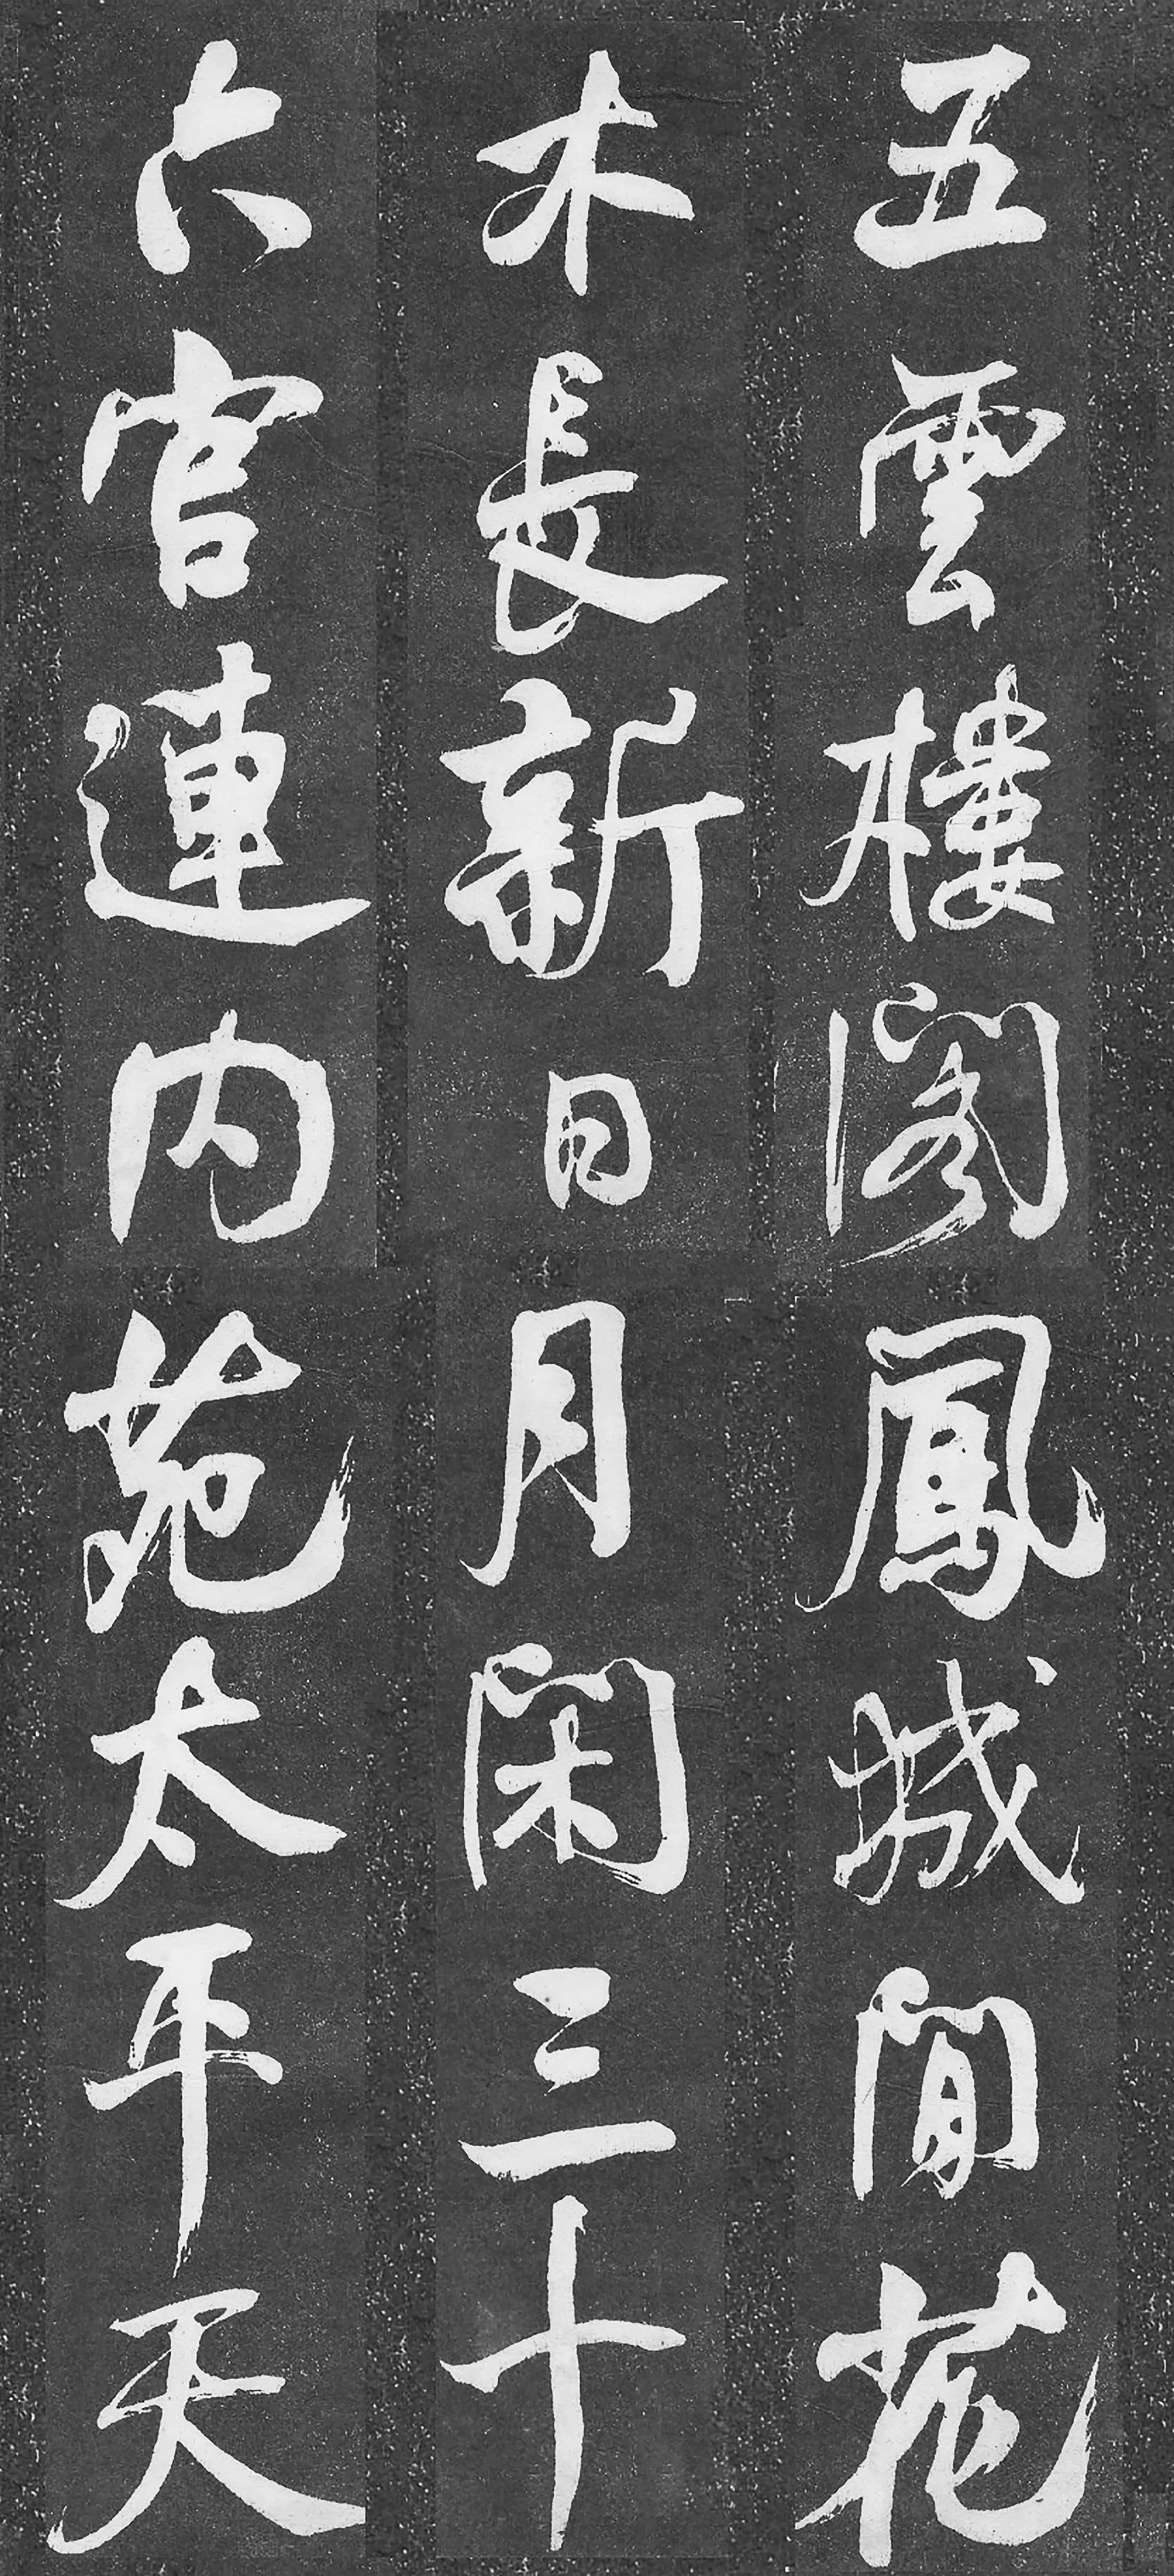 五雲樓閣鳳城間花
木長新日月閑三十
六宮連内苑太平天